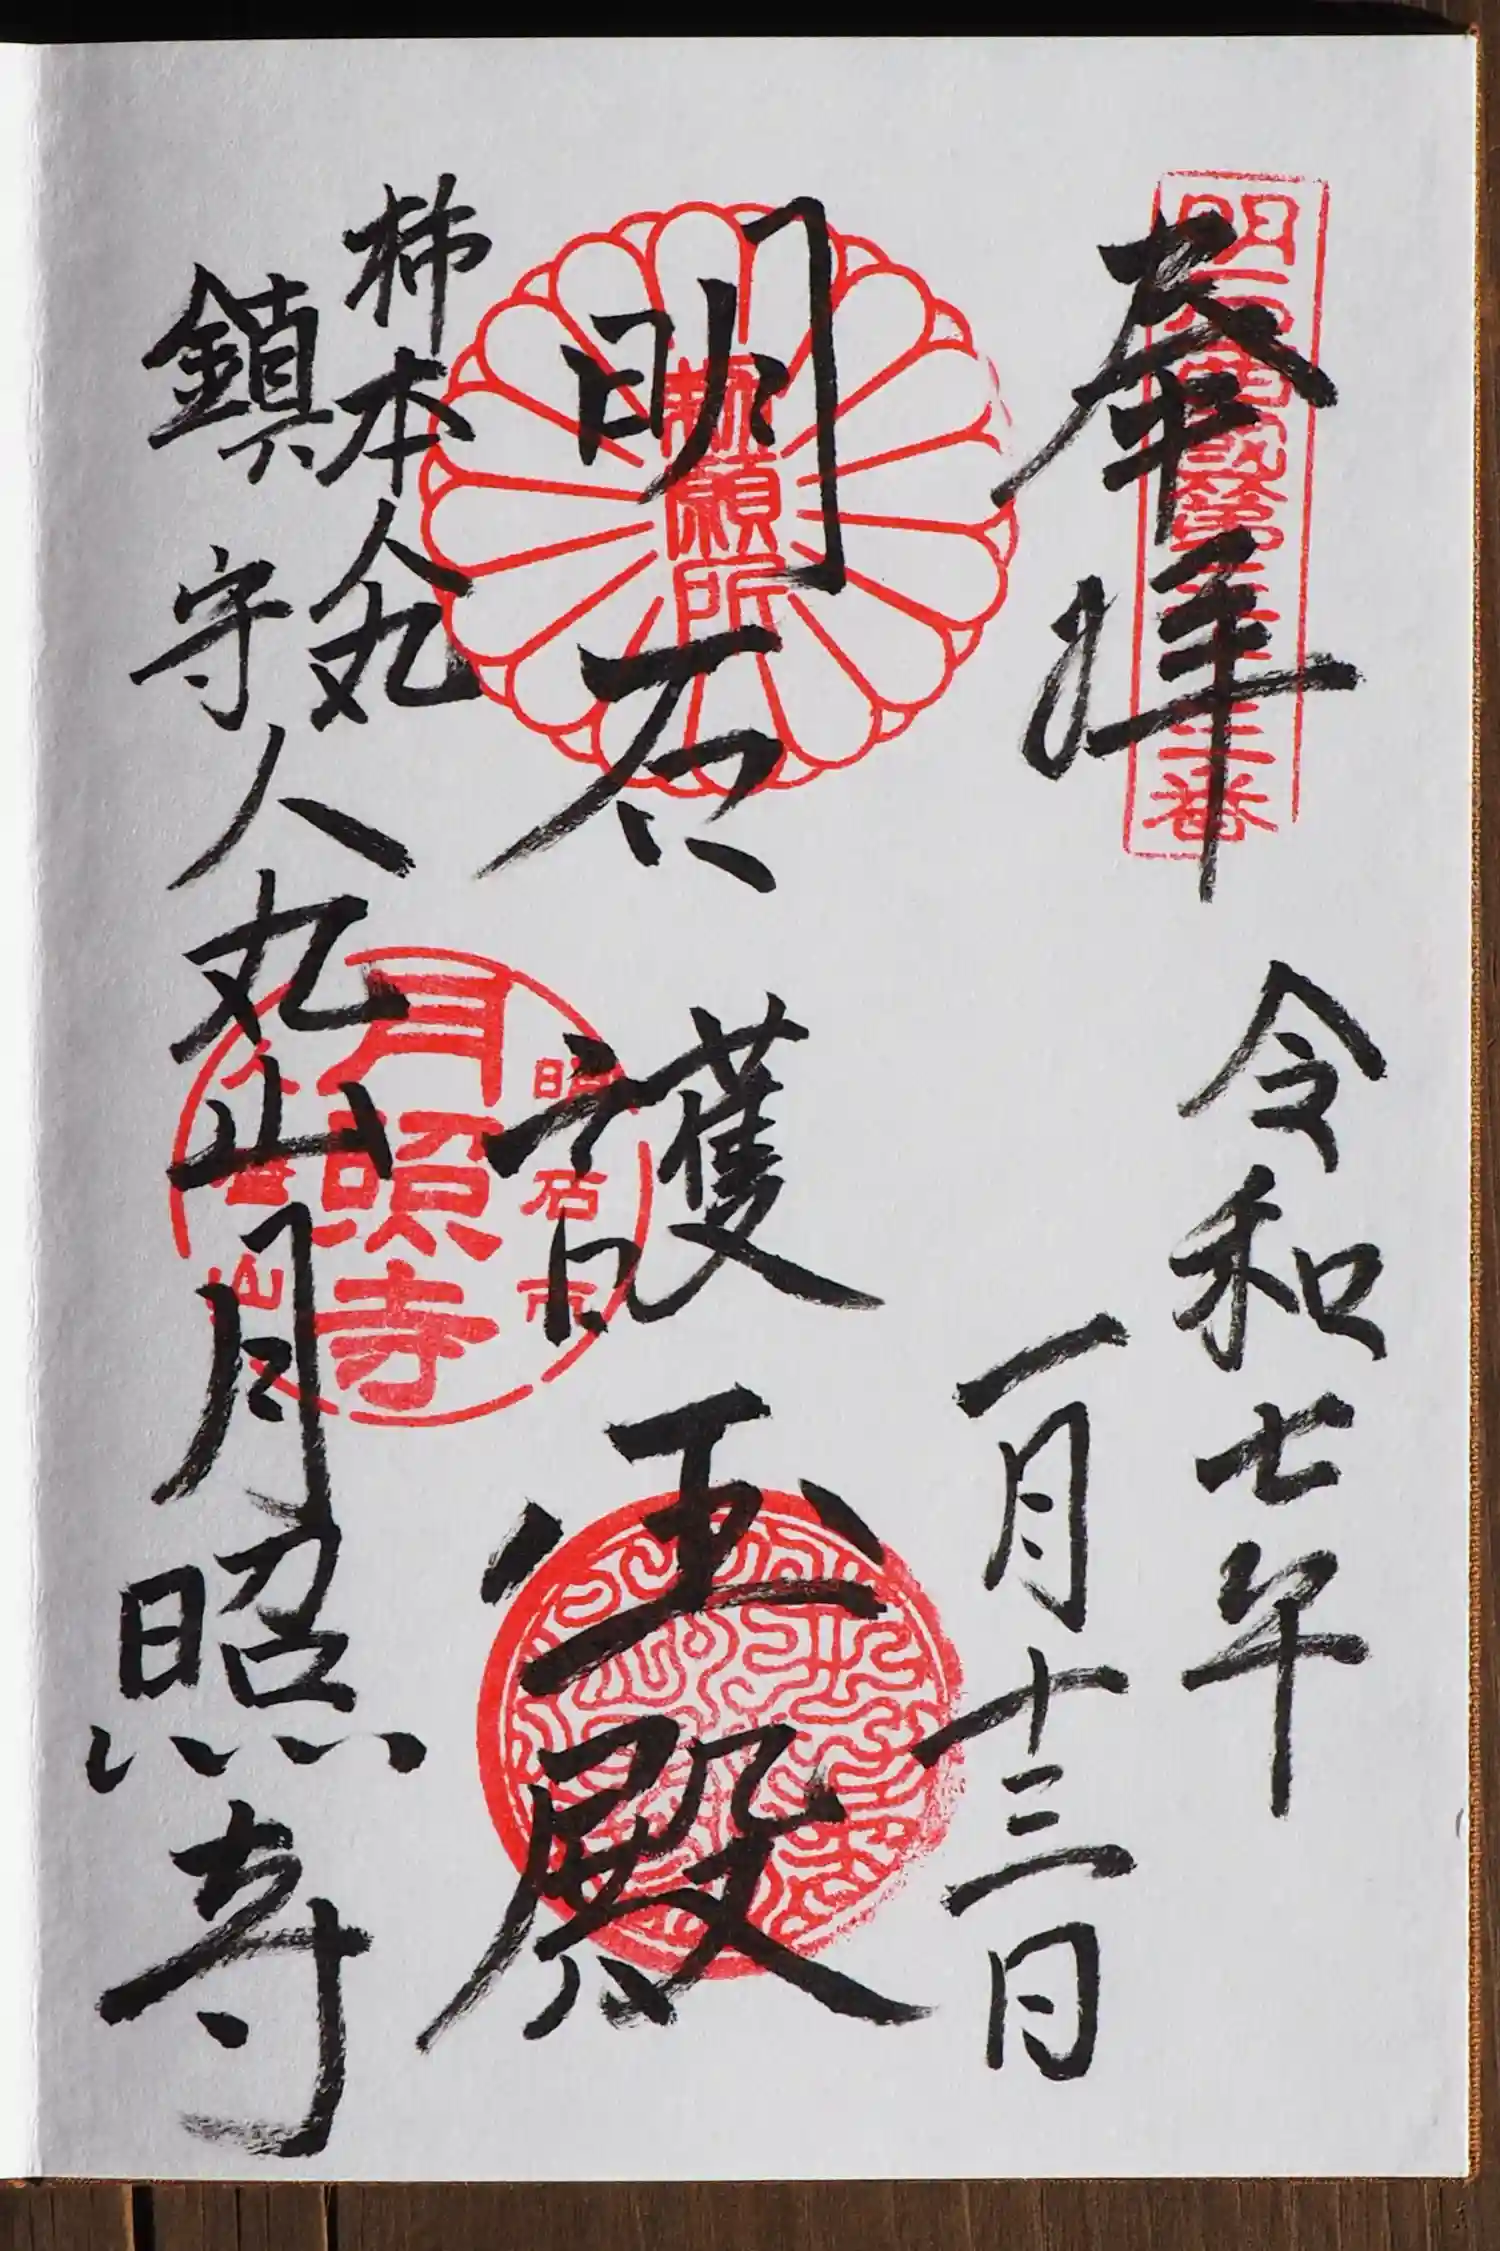 奉拝
令和七年
一月十三日
願所
明石護 殿
柿本人丸
鎮守人丸山月照寺
明石市
月照寺